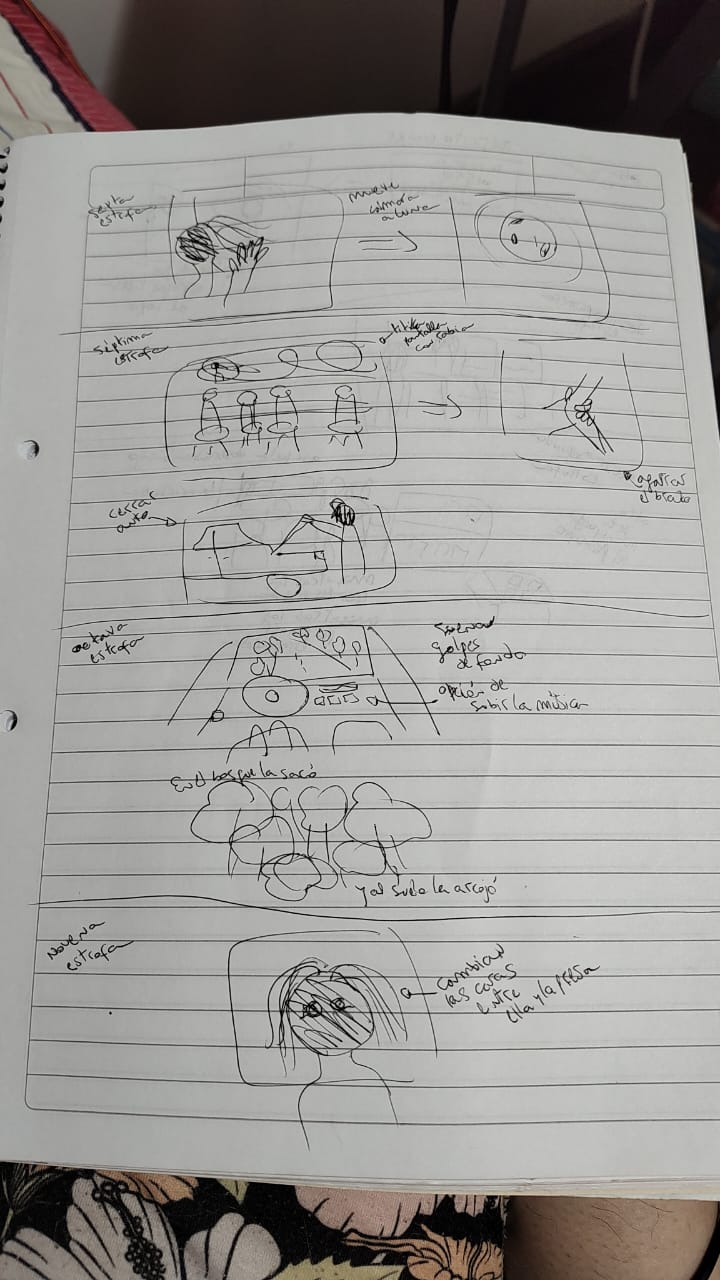 sexta
estrofa
mueve
cámara
a luna
séptima
estrofa
titila
pantalla
con rabia
agarrar
el brazo
cerrar
auto
octava
estrofa
suenan
golpes
de fondo
opción de
subir la música
En el bosque la sacó
y al suelo la arrojó
Novena
estrofa
cambian
las caras
entre
ella y la presa